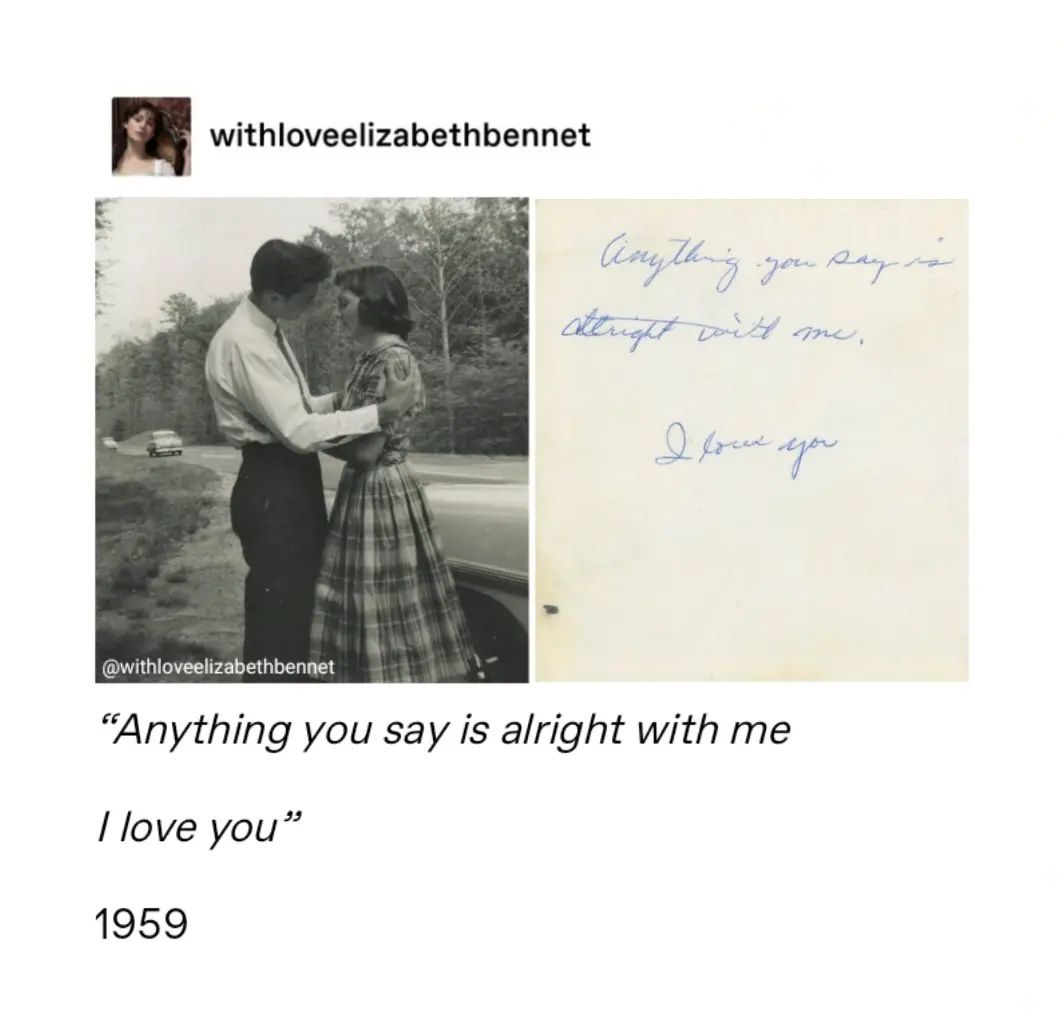 withloveelizabethbennet
@withloveelizabethbennet
Anything you say is
alright with me.
I love you
“Anything you say is alright with me
I love you”
1959